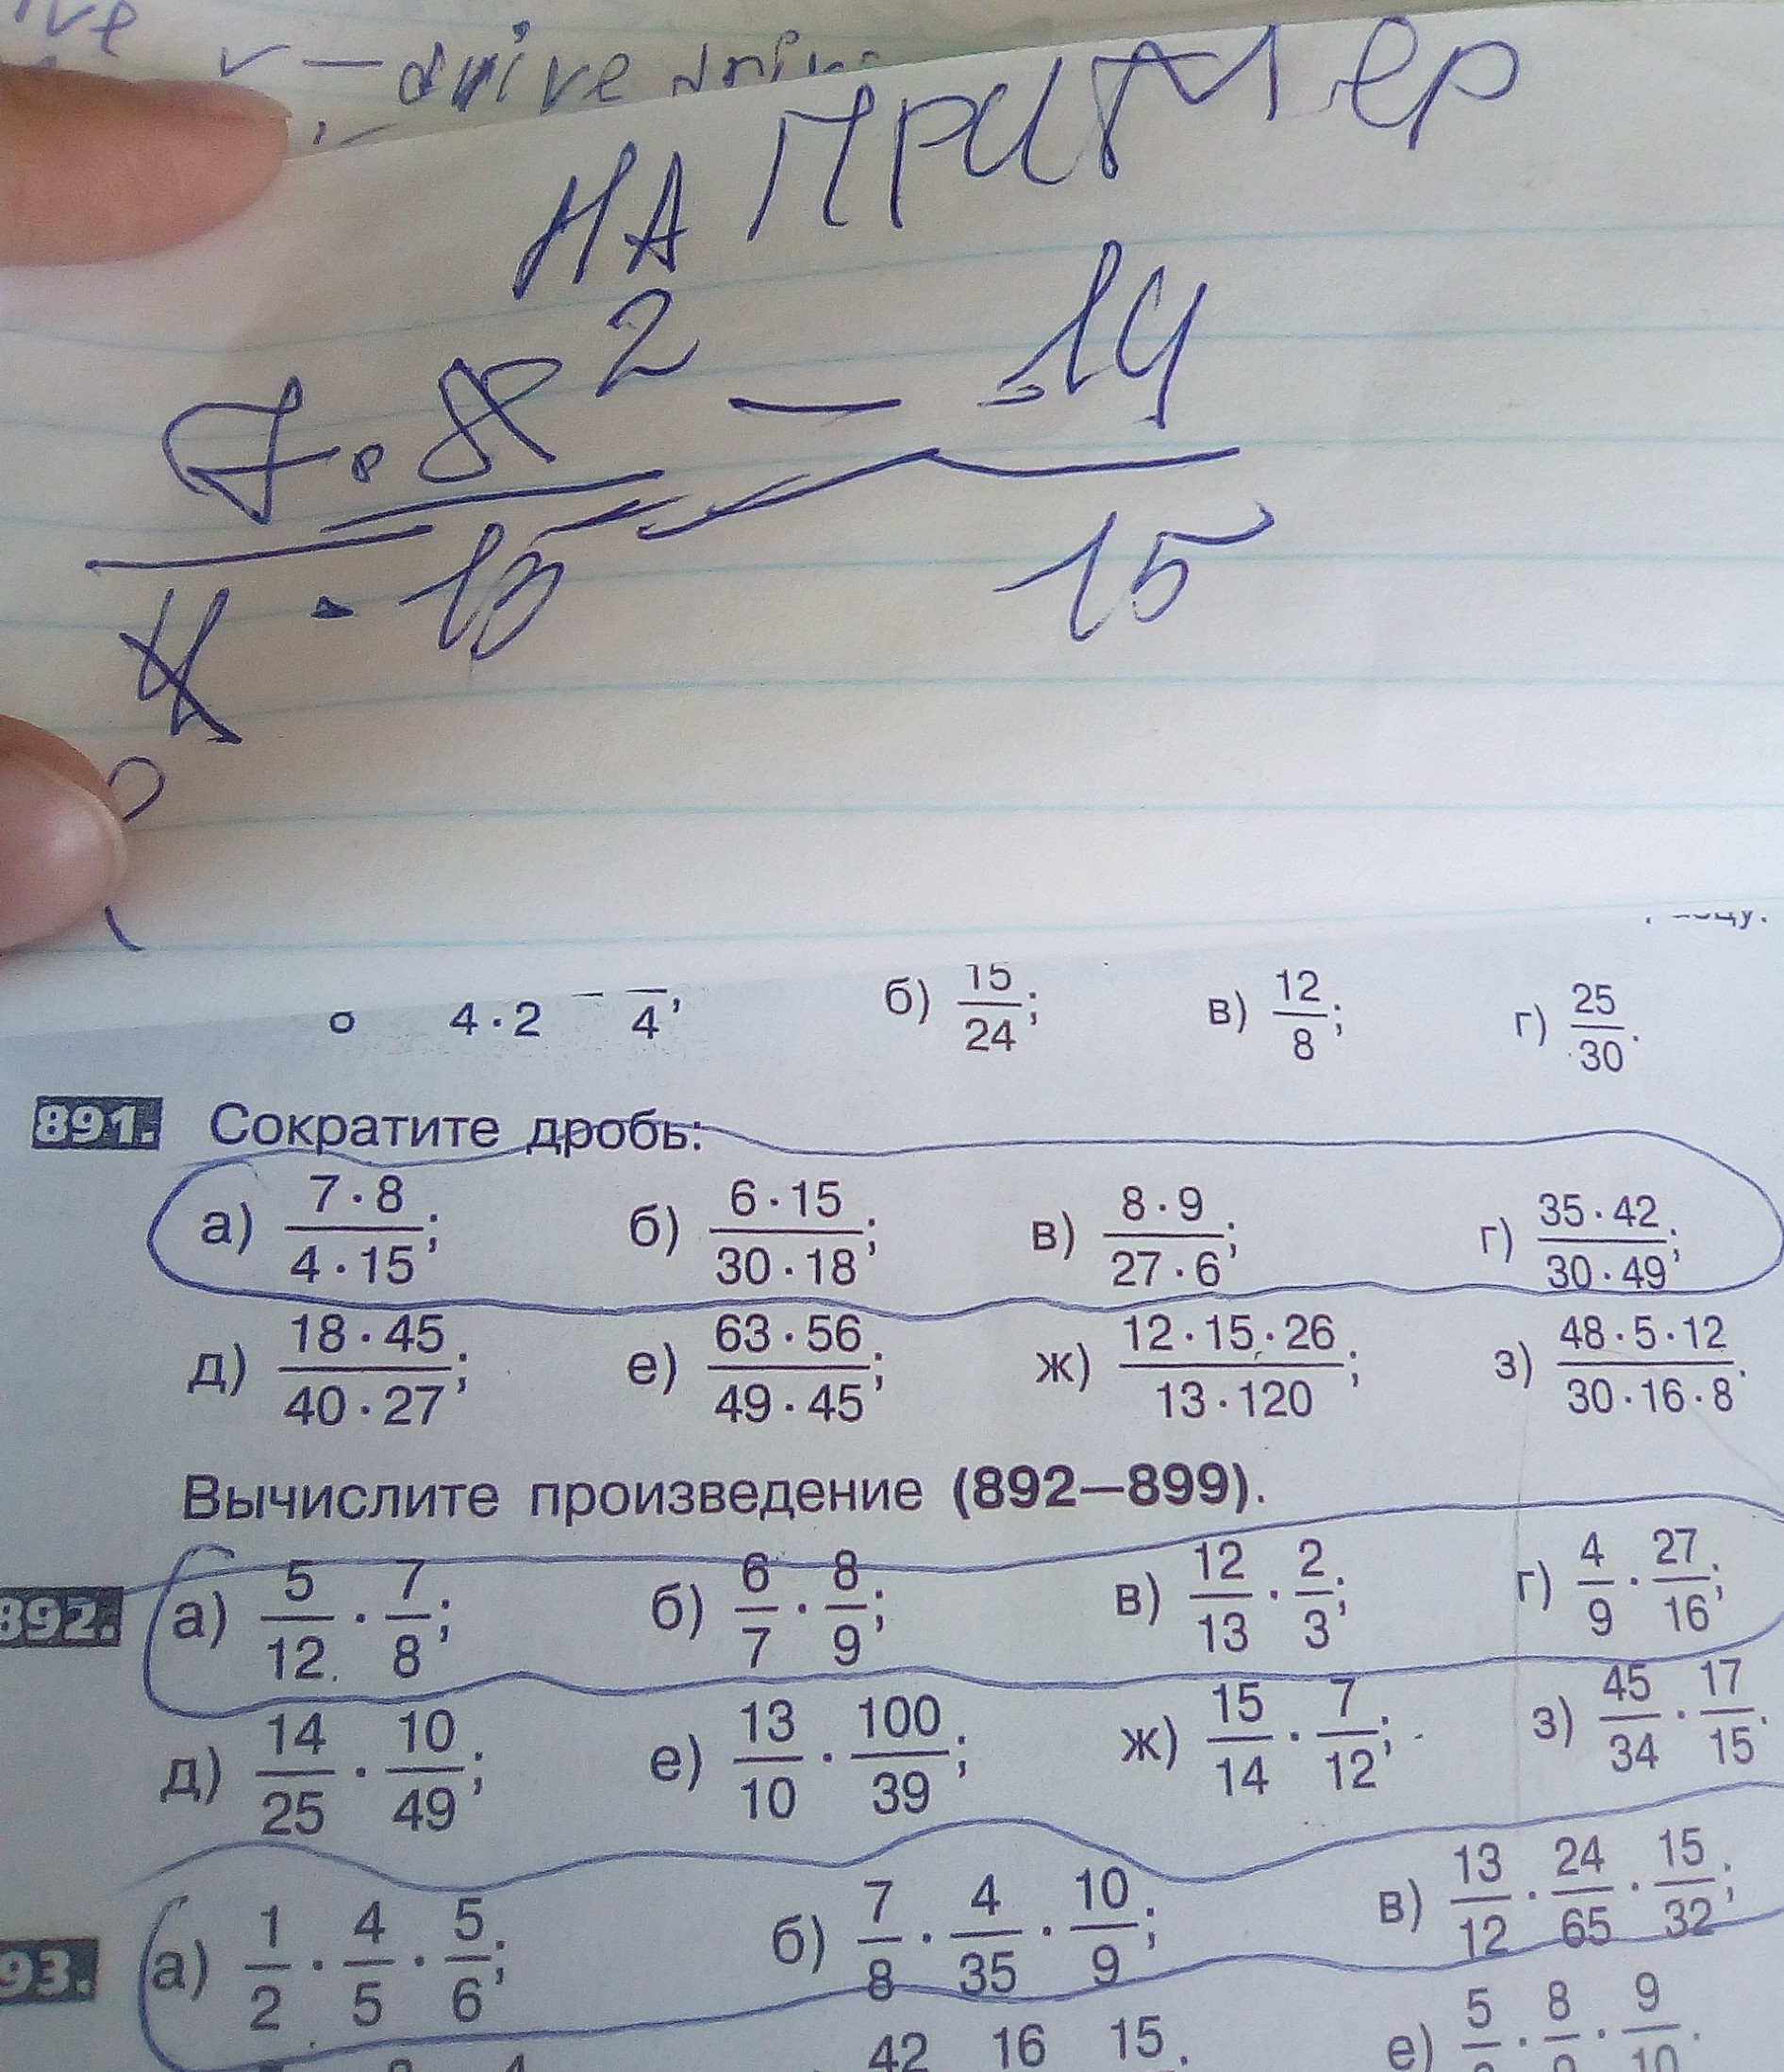 v — drive
НАПРИМЕР
7·8 2 — 14
4 · 15 15
2
4·2 4;
б) 15/24; в) 12/8; г) 25/30.
891. Сократите дробь:
а) 7·8/4·15; б) 6·15/30·18; в) 8·9/27·6; г) 35·42/30·49;
д) 18·45/40·27; е) 63·56/49·45; ж) 12·15·26/13·120; з) 48·5·12/30·16·8.
Вычислите произведение (892—899).
892. а) 5/12 · 7/8; б) 6/7 · 8/9; в) 12/13 · 2/3; г) 4/9 · 27/16;
д) 14/25 · 10/49; е) 13/10 · 100/39; ж) 15/14 · 7/12; з) 45/34 · 17/15.
93. а) 1/2 · 4/5 · 5/6; б) 7/8 · 4/35 · 10/9; в) 13/12 · 24/65 · 15/32;
42 16 15; е) 5 · 8 · 9/10.